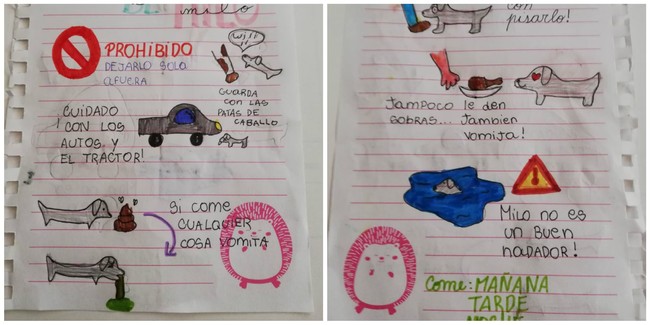 DE MILO
malo
PROHIBIDO
DEJARLO SOLO
AFUERA
Wiii
GUARDA
CON LAS
PATAS DE
CABALLO
CUIDADO
¡CON LOS
AUTOS Y
EL TRACTOR!
Si come
CUALQUIER
COSA VOMITA
con
pisarlo!
Tampoco le den
SOBRAS... Tambien
vomita!
Milo no es
un buen
nadador!
Come: MAÑANA
TARDE
NOCHE